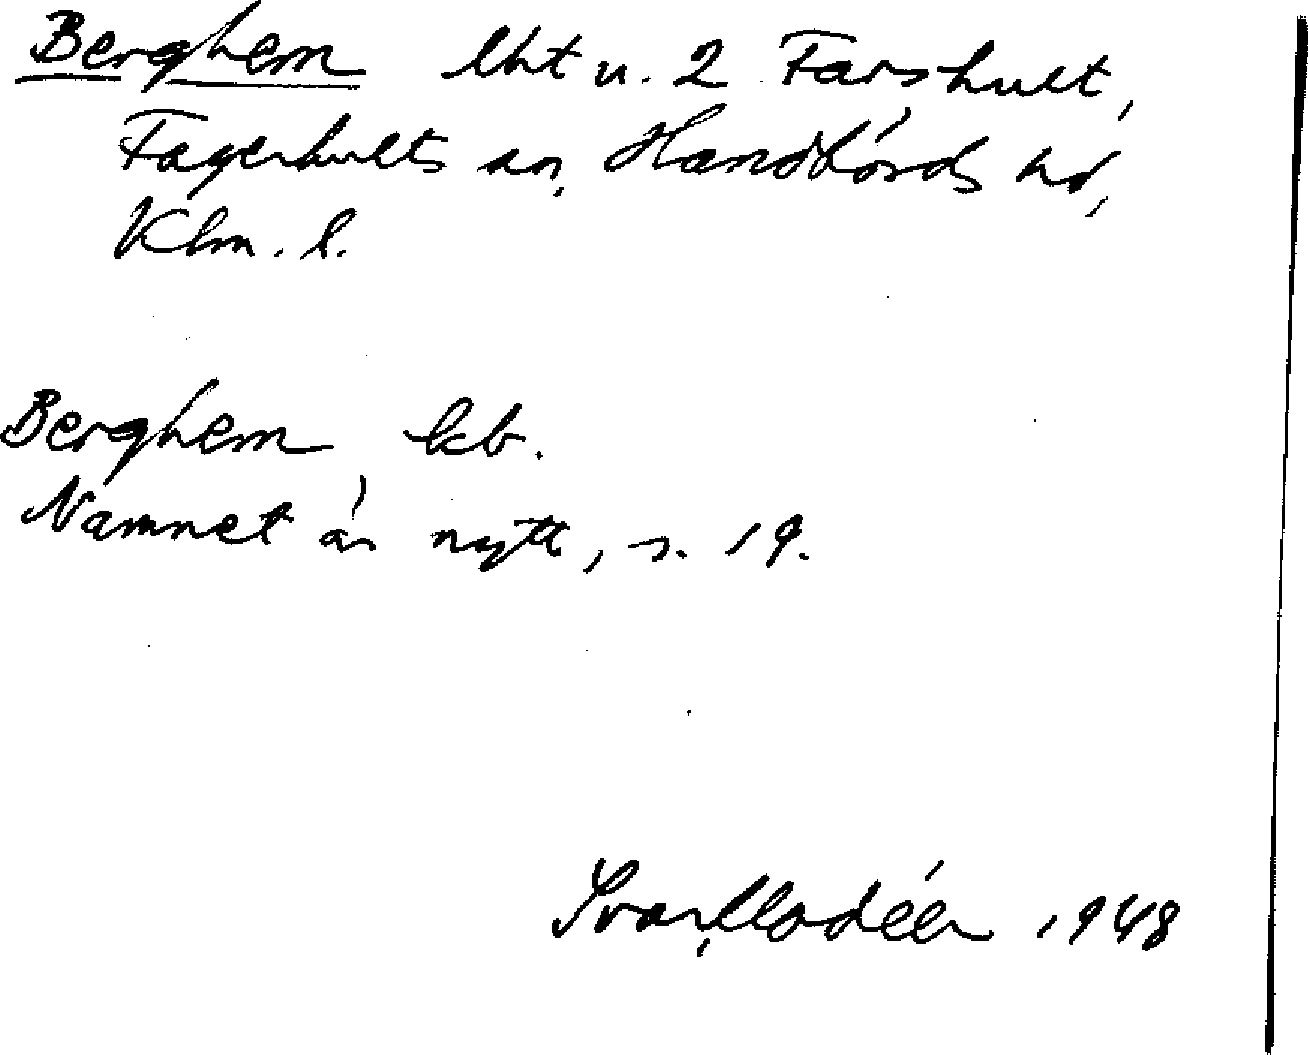 Berghem lht u. 2 Farshult,
Fagerhults sn, Handbörds hd,
Klm. l.
Berghem kb.
Namnet är nytt, s. 19.
Ivar Modéer 1948